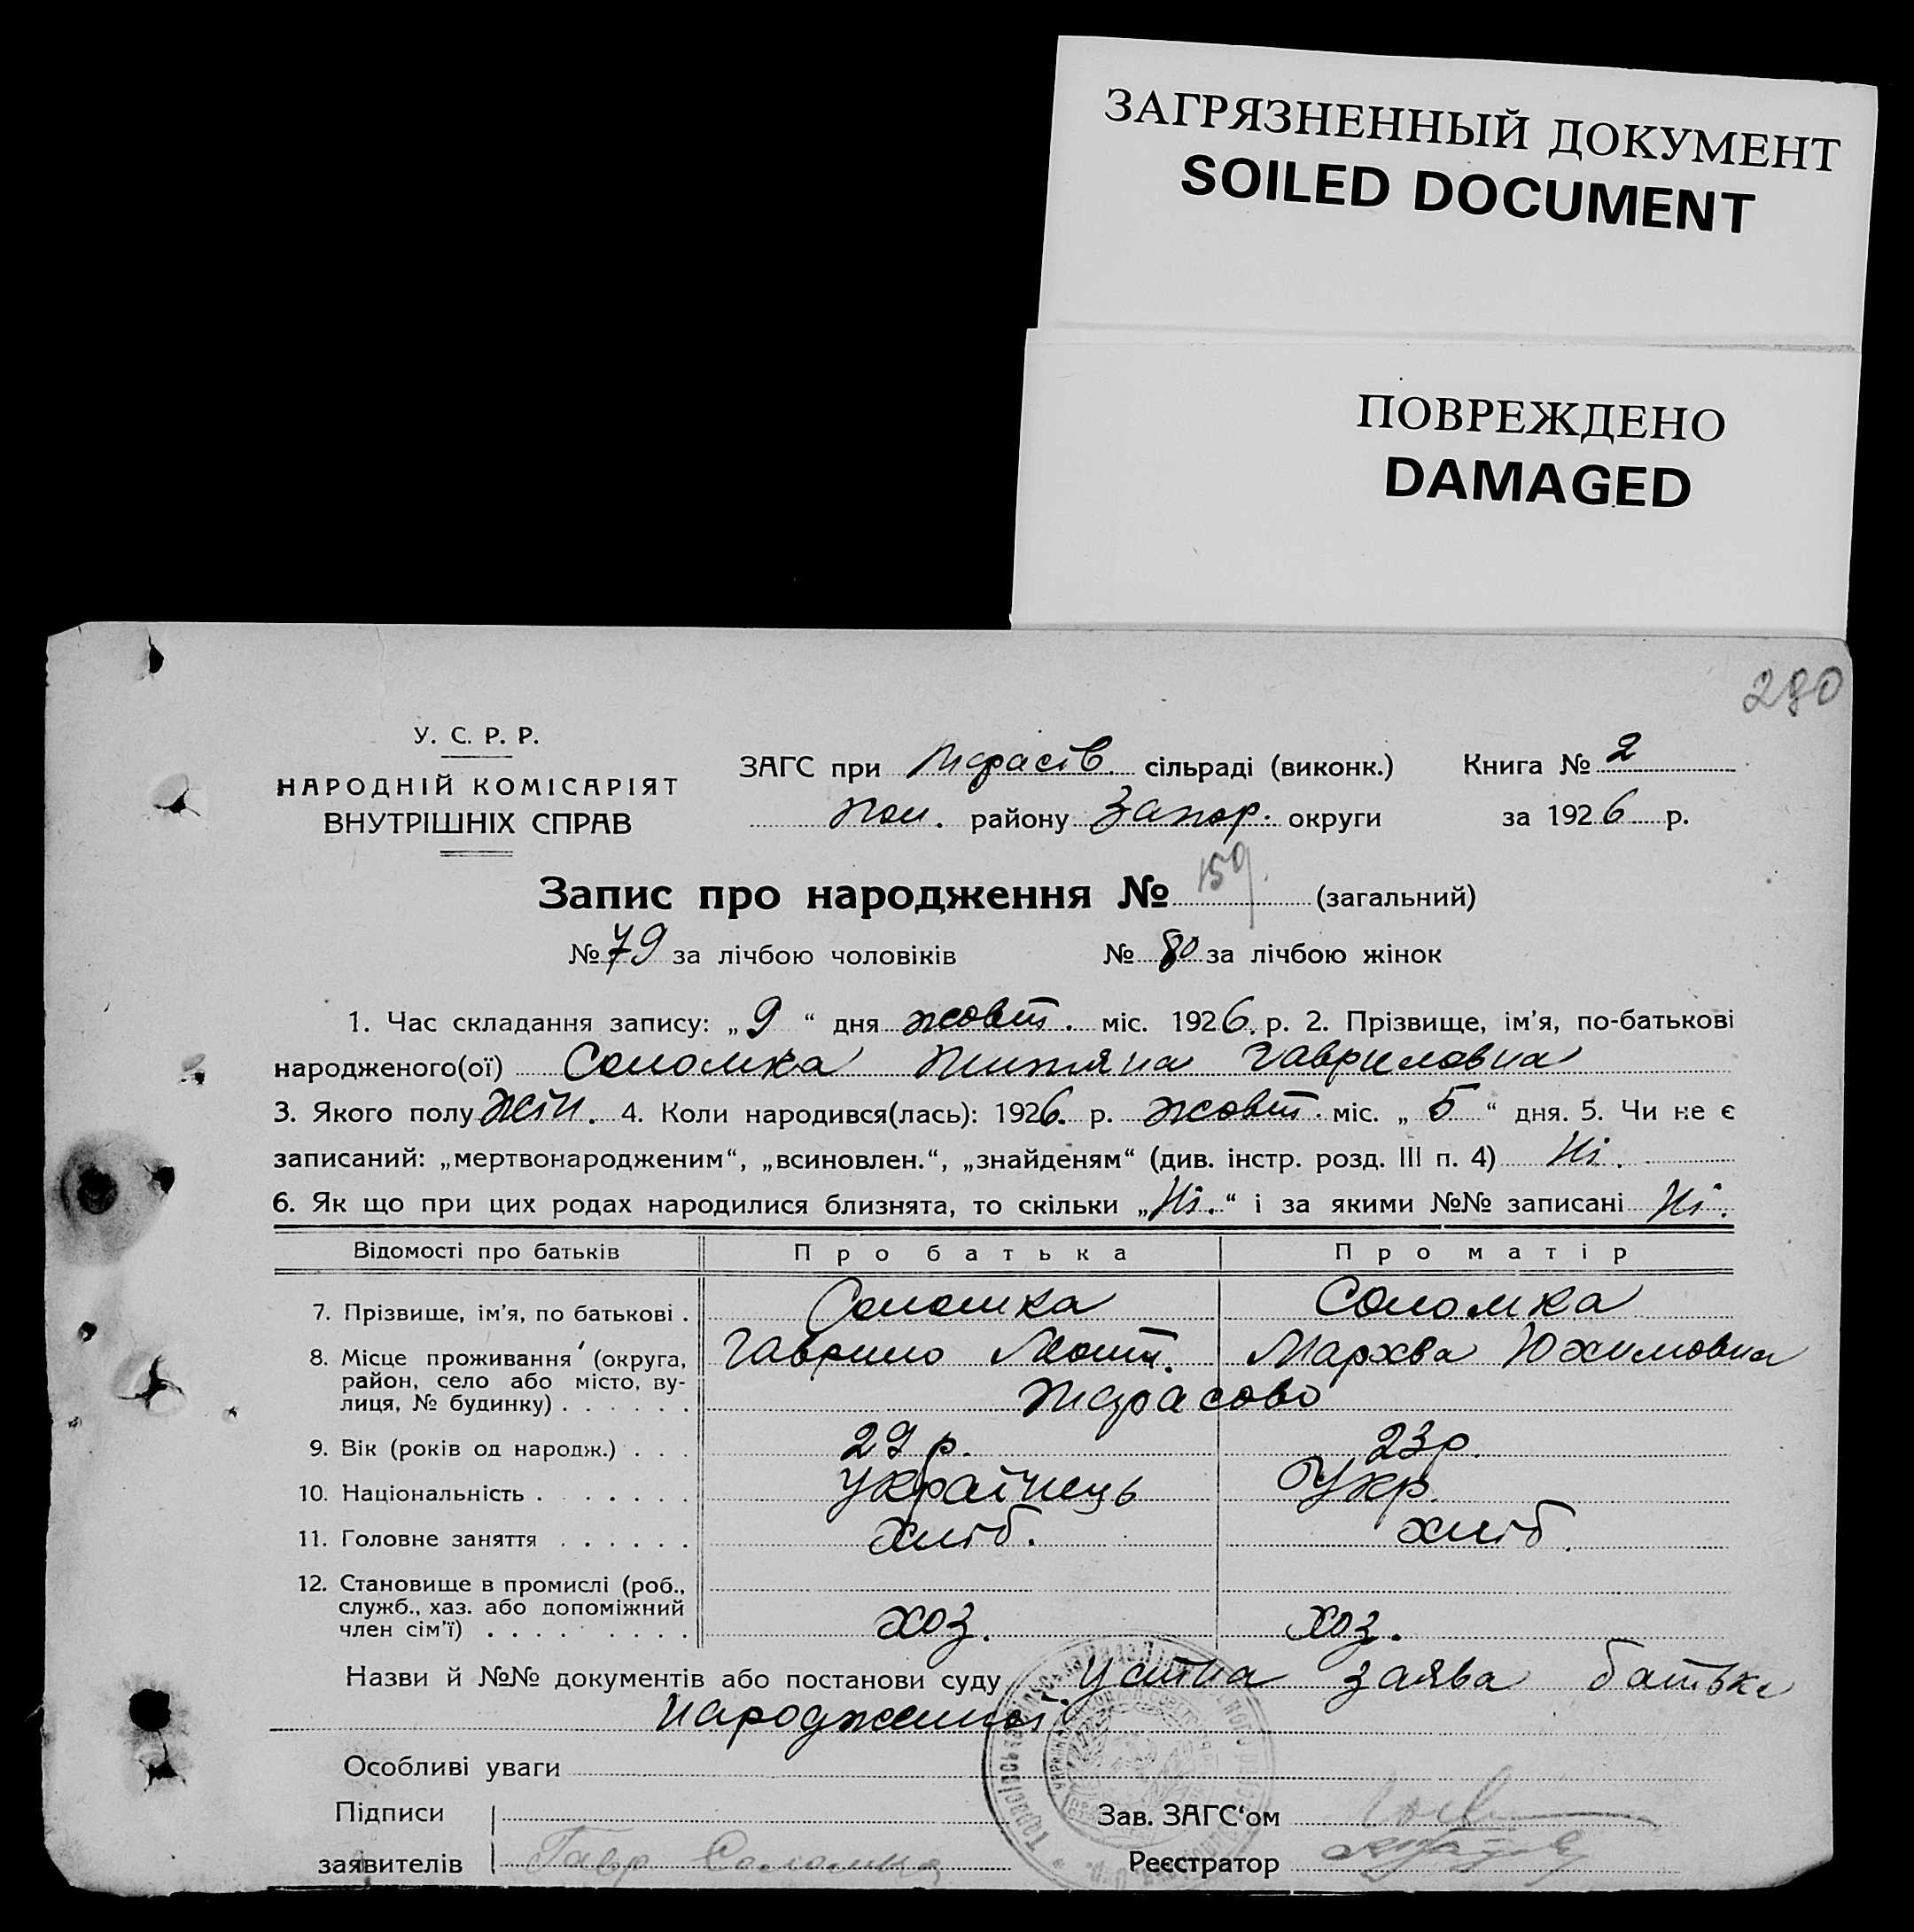 ЗАГРЯЗНЕННЫЙ ДОКУМЕНТ
SOILED DOCUMENT
ПОВРЕЖДЕНО
DAMAGED
280
У. С. Р. Р.
НАРОДНІЙ КОМІСАРІЯТ
ВНУТРІШНІХ СПРАВ
ЗАГС при Тарасів. сільраді (виконк.) Книга № 2
Пол. району Запор. округи за 1926 р.
Запис про народження № 159. (загальний)
№ 79 за лічбою чоловіків № 80 за лічбою жінок
1. Час складання запису: „9“ дня жовт. міс. 1926. р. 2. Прізвище, ім’я, по-батькові
народженого(ої) Соломка Титяна Гавриловна
3. Якого полу жін. 4. Коли народився(лась): 1926. р. жовт. міс. „5“ дня. 5. Чи не є
записаний: „мертвонародженим“, „всиновлен.“, „знайденям“ (див. інстр. розд. III п. 4) Ні.
6. Як що при цих родах народилися близнята, то скільки „Ні.“ і за якими №№ записані Ні.
Відомості про батьків Про батька Про матір
7. Прізвище, ім’я, по батькові . Соломка Соломка
8. Місце проживання (округа, Гаврило Мархва Юхимовна
район, село або місто, ву- Тарасово
лиця, № будинку) . . . . . .
9. Вік (років од народж.) . . . 29 р. 23 р.
10. Національність . . . . . . . Українець Укр.
11. Головне заняття . . . . . . хліб. хліб.
12. Становище в промислі (роб.,
служб., хаз. або допоміжний
член сім’ї) . . . . . . . . . хоз. хоз.
Назви й №№ документів або постанови суду Устна заява батька
народженної
Особливі уваги
Підписи Зав. ЗАГС‘ом
заявителів Гавр Соломка Реєстратор